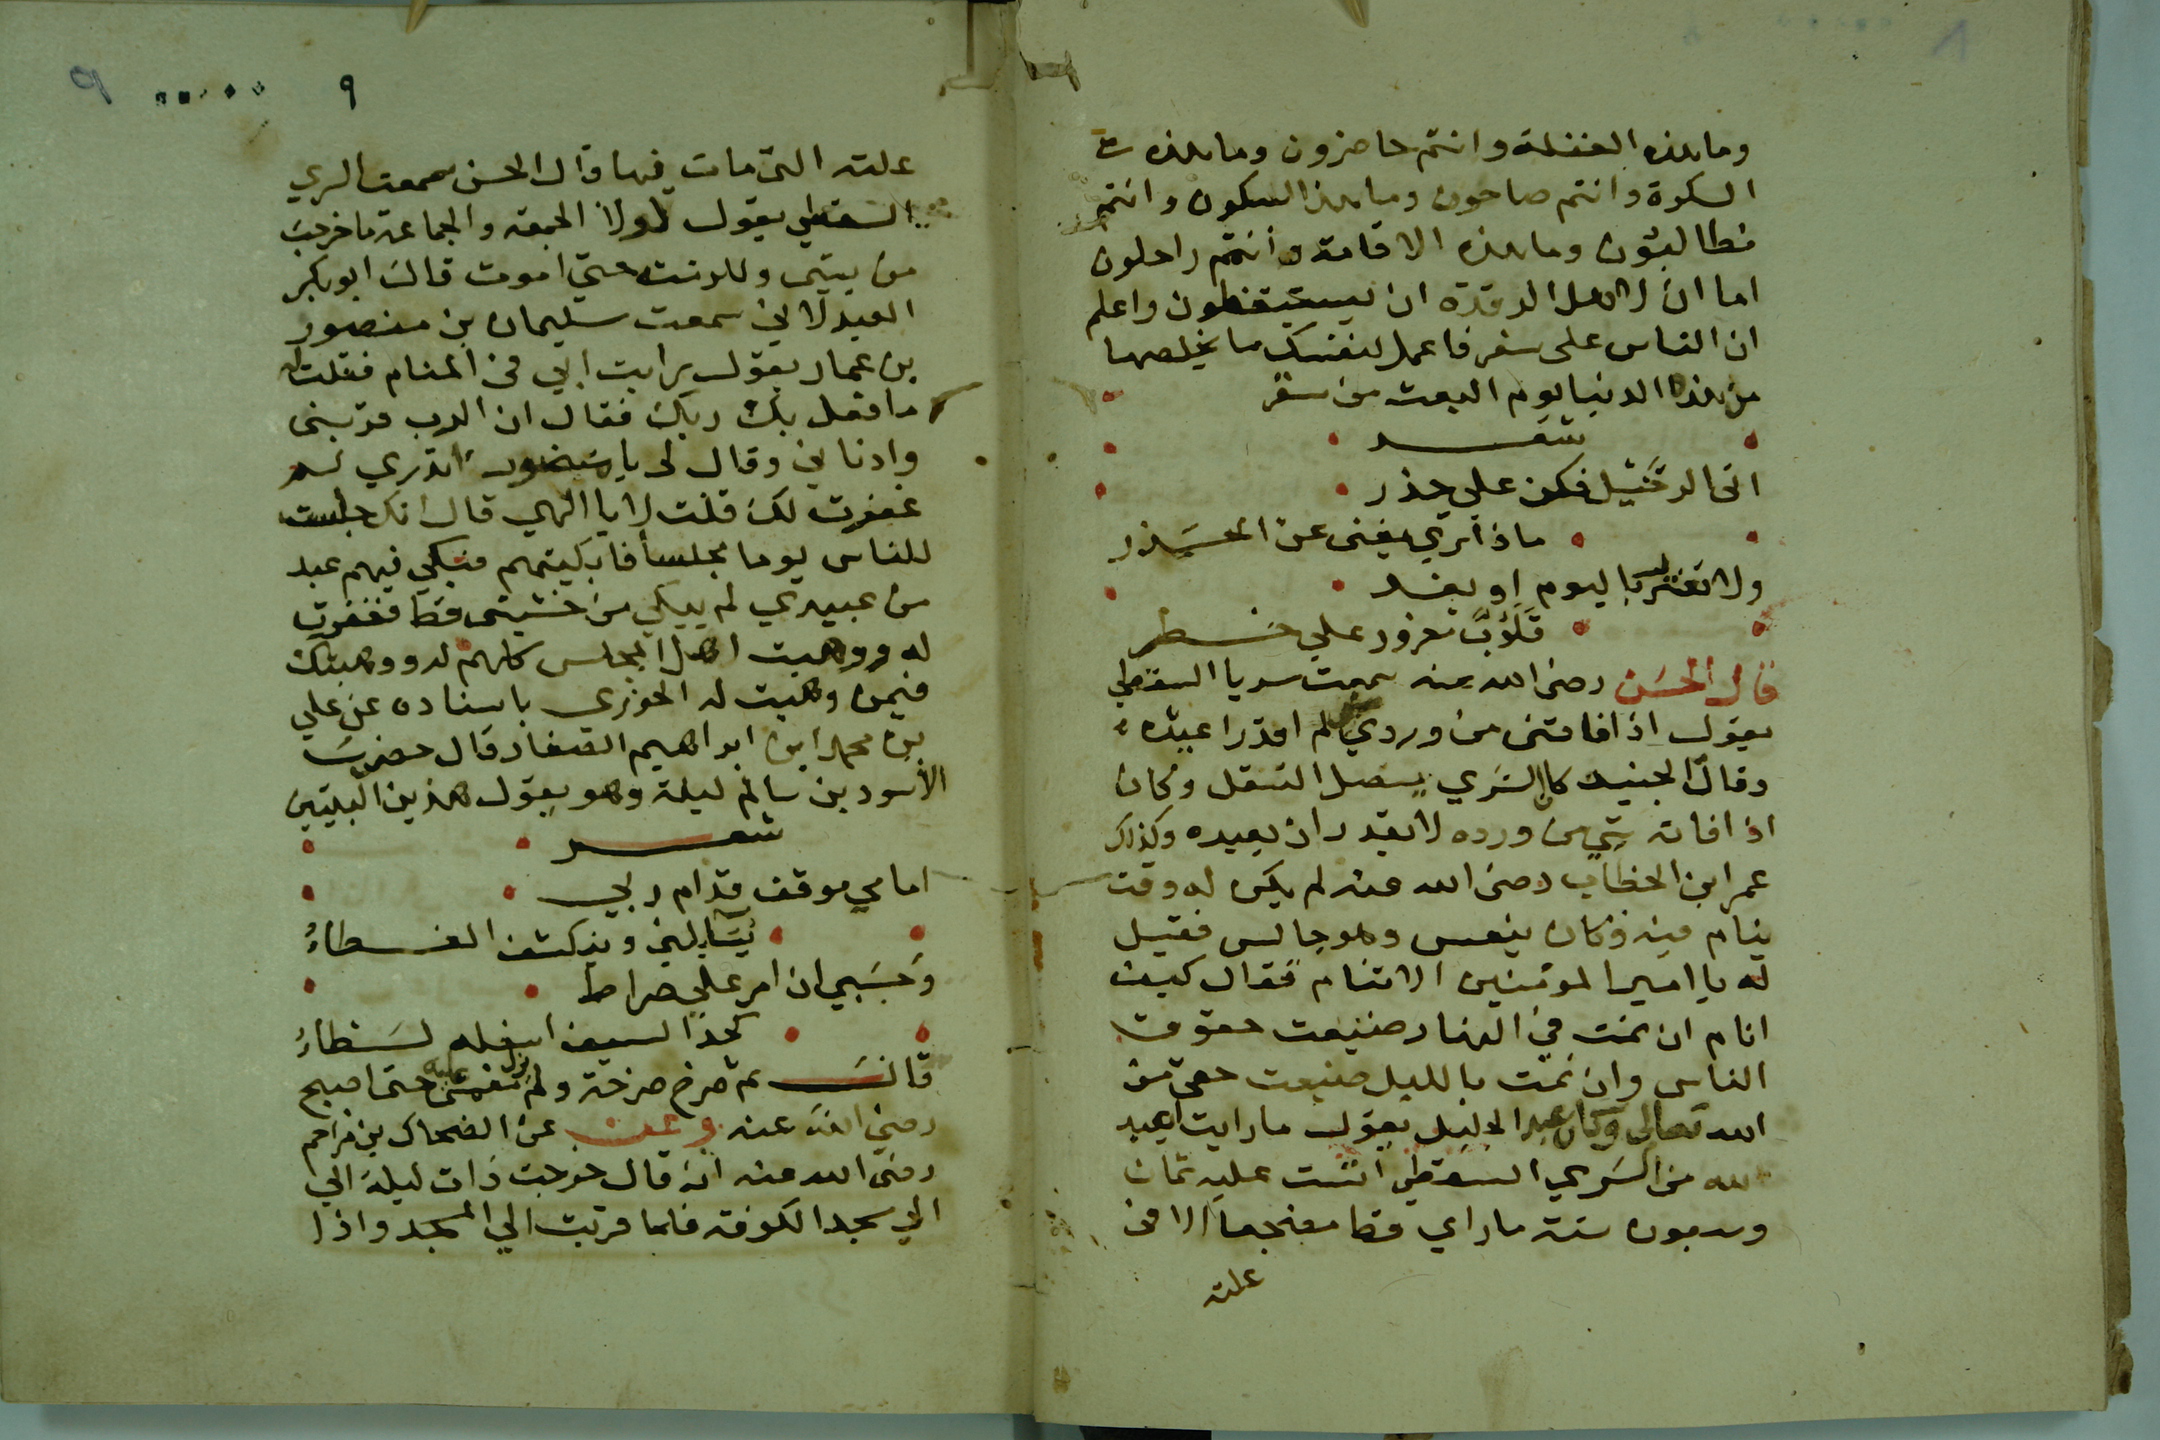 وما هذه الغفلة وانتم حاضرون وما هذه
السكرة وانتم صاحون وما هذا السكون وانتم
مطالبون وما هذه الاقامة وانتم راحلون
اما ان لاهل الرقدة ان يستيقظون واعلم
ان الناس على سفر فاعمل لنفسك ما يخلصها
من هذه الدنيا يوم البعث من سقر
شعر
اتى الرحيل فكن علي حذر
ماذا تري يغنى عن الحذر
ولا تغترر باليوم او بغد
فلرب مغرور علي خطر
قال الحسن رضى الله عنه سمعت سريا السقطي
يقول اذا فاتنى من وردي لم اقدر اعيده
وقال الجنيد كان السري يتصل التنقل وكان
اذا فاته شي من ورده لا يقدر ان يعيده وكذلك
عمر ابن الخطاب رضى الله عنه لم يكن له وقت
ينام فيه فكان ينعس وهو جالس فقيل
له يا امير المومنين الا تنام فقال كيف
انام ان نمت في النهار ضيعت حقوق
الناس وان نمت بالليل ضيعت حقي من
الله تعالى وكان عبد الجليل يقول ما رايت اعبد
لله من السري السقطي اتت عليه ثمان
وسبعون سنة ما راي قط مضجعا الا في
علته
٩
٩
علته التى مات فيها قال الحسن سمعت السري
السقطي يقول لولا الجمعه والجماعة ما خرجت
من بيتى وللزمته حتي اموت قال ابو بكر
الصيدلاني سمعت سليمان بن منصور
بن عمار يقول رايت ابي في المنام فقلت له
ما فعل بك ربك فقال ان الرب قربنى
وادناني وقال لى يا منصور اتدري لم
غفرت لك قلت لا يا الهي قال انك جلست
للناس يوما مجلسا فابكيتهم فبكي فيهم عبد
من عبيدي لم يبكي من خشيتى قط فغفرت
له ووهبت اهل المجلس كلهم له ووهبتك
فيمن وهبت له الجوزى باسناده عن علي
بن محمد ابن ابراهيم الصفار قال حضرت
الأسود بن سالم ليلة وهو يقول هذين البيتين
شعر
امامي موقف قدام ربي
يسايلني وينكشف الغطاءُ
وحسبي ان امر علي صراط
كحد السيف اسفله لظاءُ
قال ثم صرخ صرخة ولم يزل مغمى عليه حتى اصبح
رضي الله عنه وعن عن الضحاك بن مزاحم
رضى الله عنه انه قال خرجت ذات ليلة الي
الي مسجد الكوفة فلما قربت الي المسجد واذا